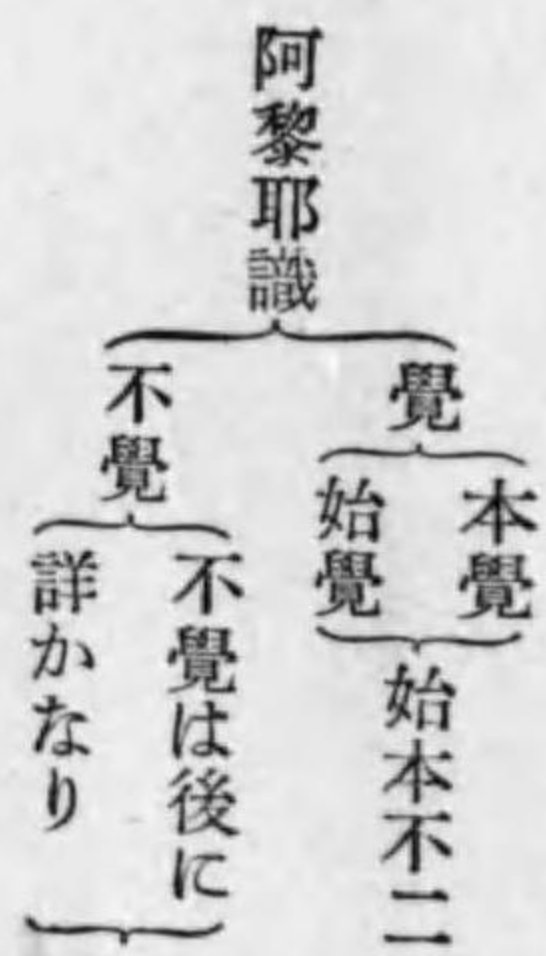 阿黎耶識
覺
本覺
始覺
始本不二
不覺
不覺は後に
詳かなり